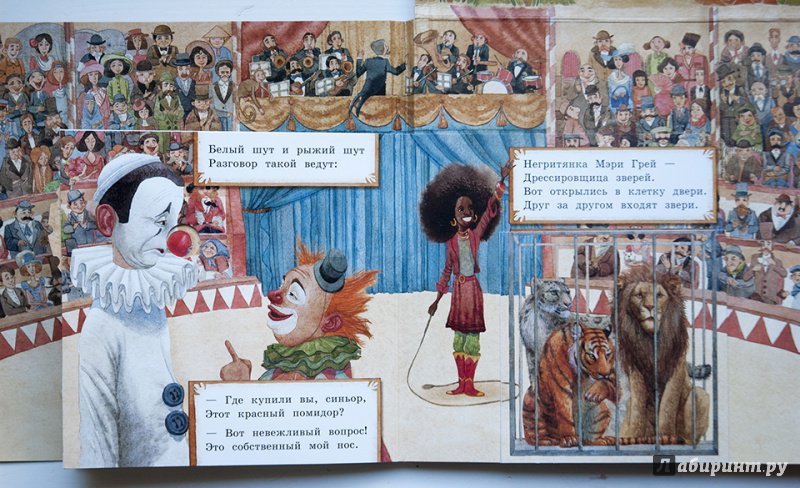 Белый шут и рыжий шут
Разговор такой ведут:
— Где купили вы, синьор,
Этот красный помидор?
— Вот невежливый вопрос!
Это собственный мой нос.
Негритянка Мэри Грей —
Дрессировщица зверей.
Вот открылись в клетку двери.
Друг за другом входят звери.
Лабиринт.ру